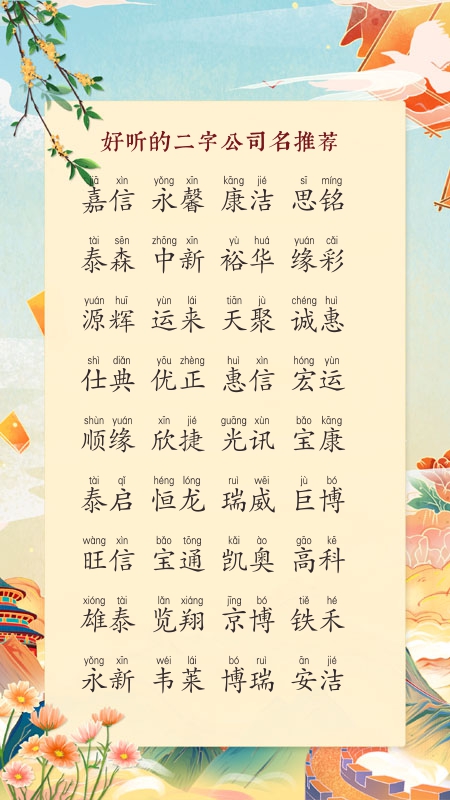 好听的二字公司名推荐
jiā xìn yǒng xīn kāng jié sī míng
嘉信 永馨 康洁 思铭
tài sēn zhōng xīn yù huá yuán cǎi
泰森 中新 裕华 缘彩
yuán huī yùn lái tiān jù chéng huì
源辉 运来 天聚 诚惠
shì diǎn yōu zhèng huì xìn hóng yùn
仕典 优正 惠信 宏运
shùn yuán xīn jié guāng xùn bǎo kāng
顺缘 欣捷 光讯 宝康
tài qǐ héng lóng ruì wēi jù bó
泰启 恒龙 瑞威 巨博
wàng xìn bǎo tōng kǎi ào gāo kē
旺信 宝通 凯奥 高科
xióng tài lǎn xiáng jīng bó tiě hé
雄泰 览翔 京博 铁禾
yǒng xīn wéi lái bó ruì ān jié
永新 韦莱 博瑞 安洁